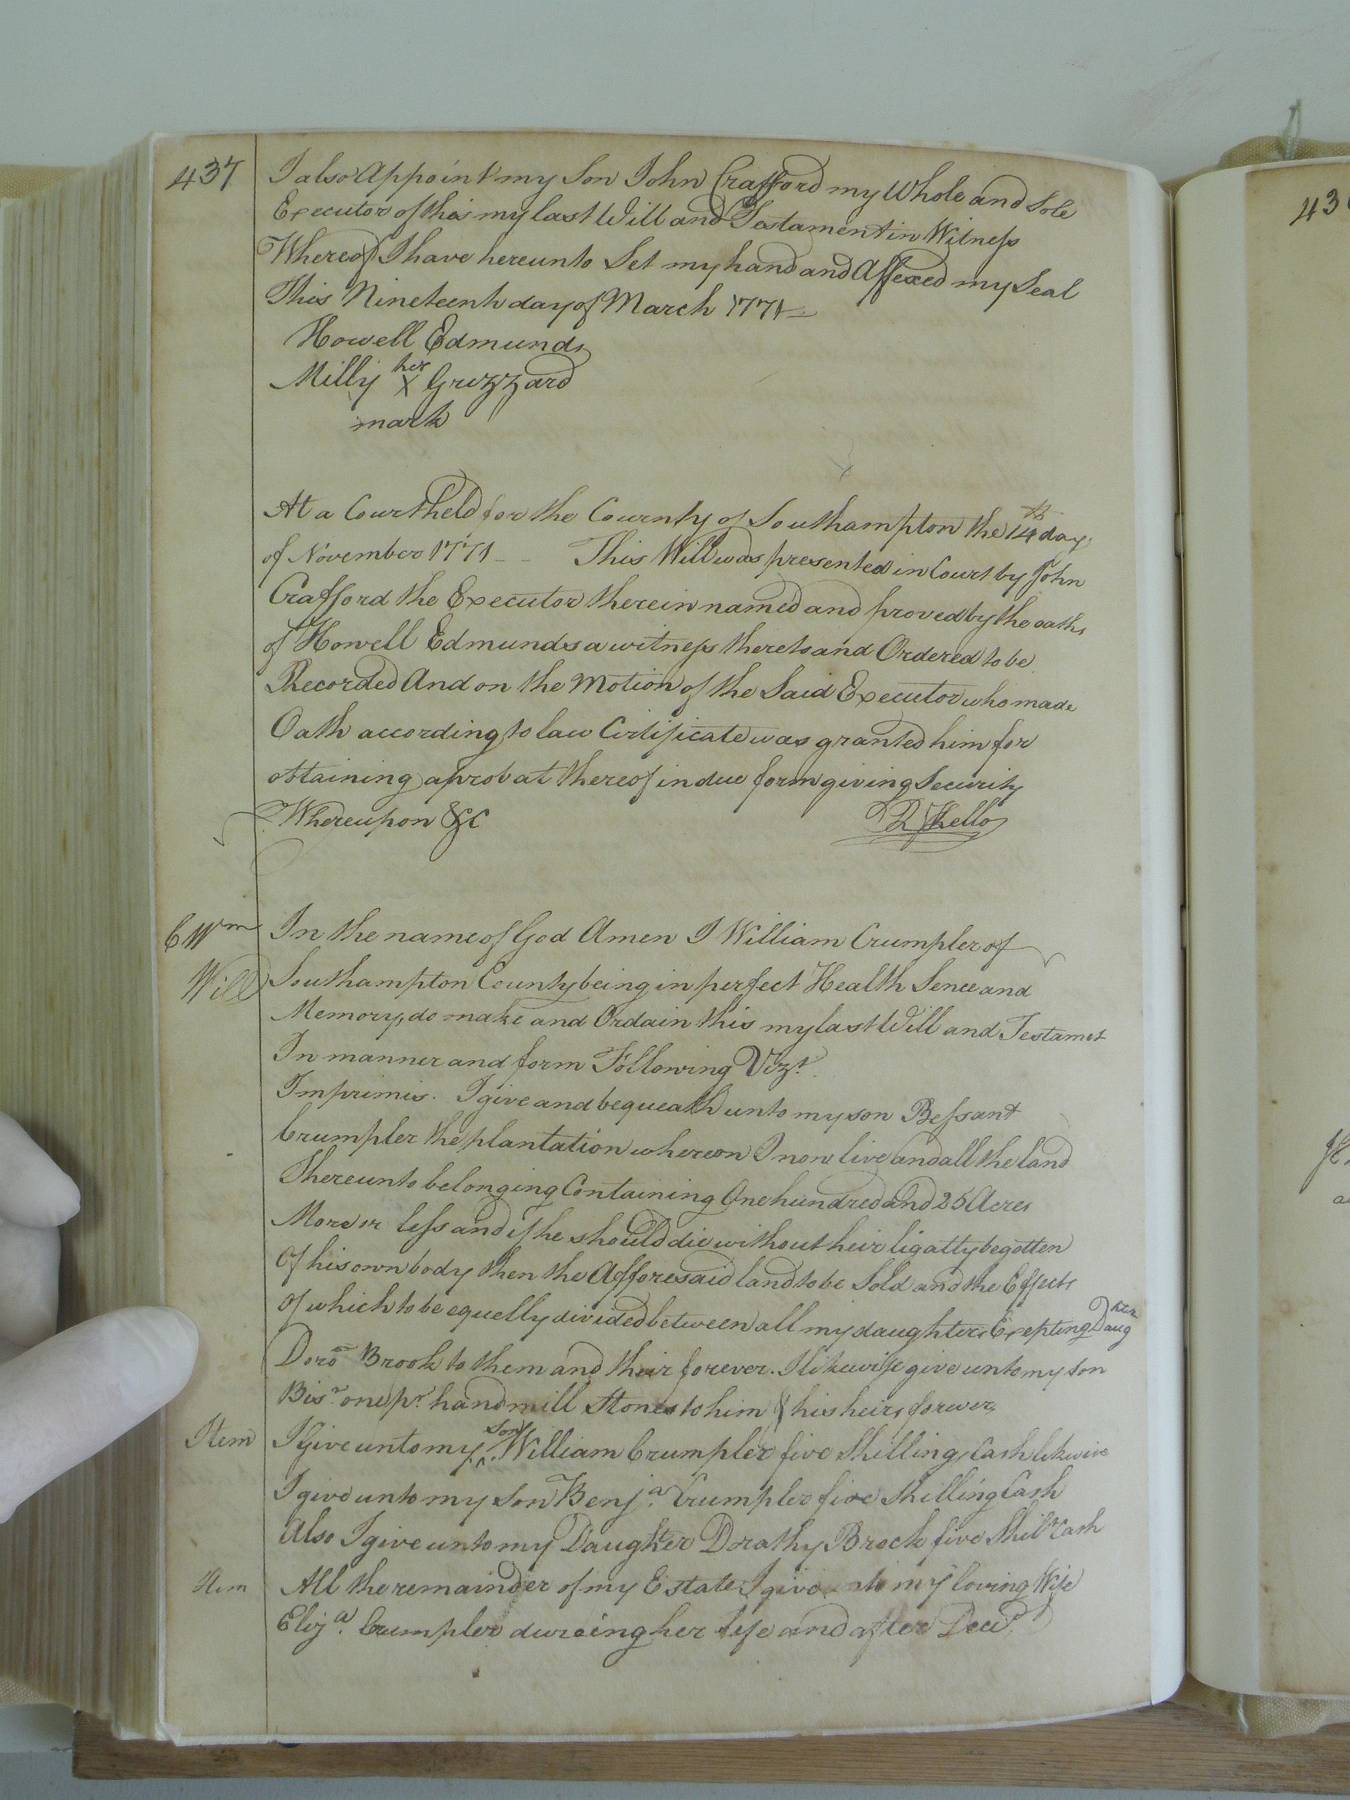 437
I also Appoint my Son John Crafford my Whole and Sole
Executor of this my last Will and Testament in Witness
Whereof I have hereunto Set my hand and Affexed my Seal
This Nineteenth day of March 1771
Howell Edmunds
Milly her X Grizzard
mark
At a Court held for the County of Southampton the 14th day
of November 1771 - - This Will was presented in Court by John
Crafford the Executor therein named and proved by the oaths
of Howell Edmunds a witness thereto and Ordered to be
Recorded And on the Motion of the Said Executor who made
Oath according to law Certificate was granted him for
obtaining a probat thereof in due form giving Security
Whereupon &C
R Kello
C Wm
Will
In the name of God Amen I William Crumpler of
Southampton County being in perfect Health Sence and
Memory, do make and Ordain this my last Will and Testamet
In manner and form Following Vizt.
Imprimis. I give and bequeath unto my son Bessant
Crumpler the plantation whereon I now live and all the land
Thereunto belonging Containing One hundred and 25 Acres
More or less and if he should die without heir ligally begotten
Of his own body then the Afforesaid land to be Sold and the Effects
Of which to be equelly divided between all my daughters Exepting Daughter
Doro Brock to them and their forever. I likewise give unto my son
Bist one pr hand mill Stones to him & his heirs forever,
Item I Give unto my son William Crumpler five Shillings Cash likewise
I give unto my Son Benja. Crumpler five Shilling Cash
Also I give unto my Daughter Dorathy Brock five Shils Cash
Item All the remainder of my Estate I give unto my loving Wife
Eliza. Crumpler dureing her life and after Decd.
43